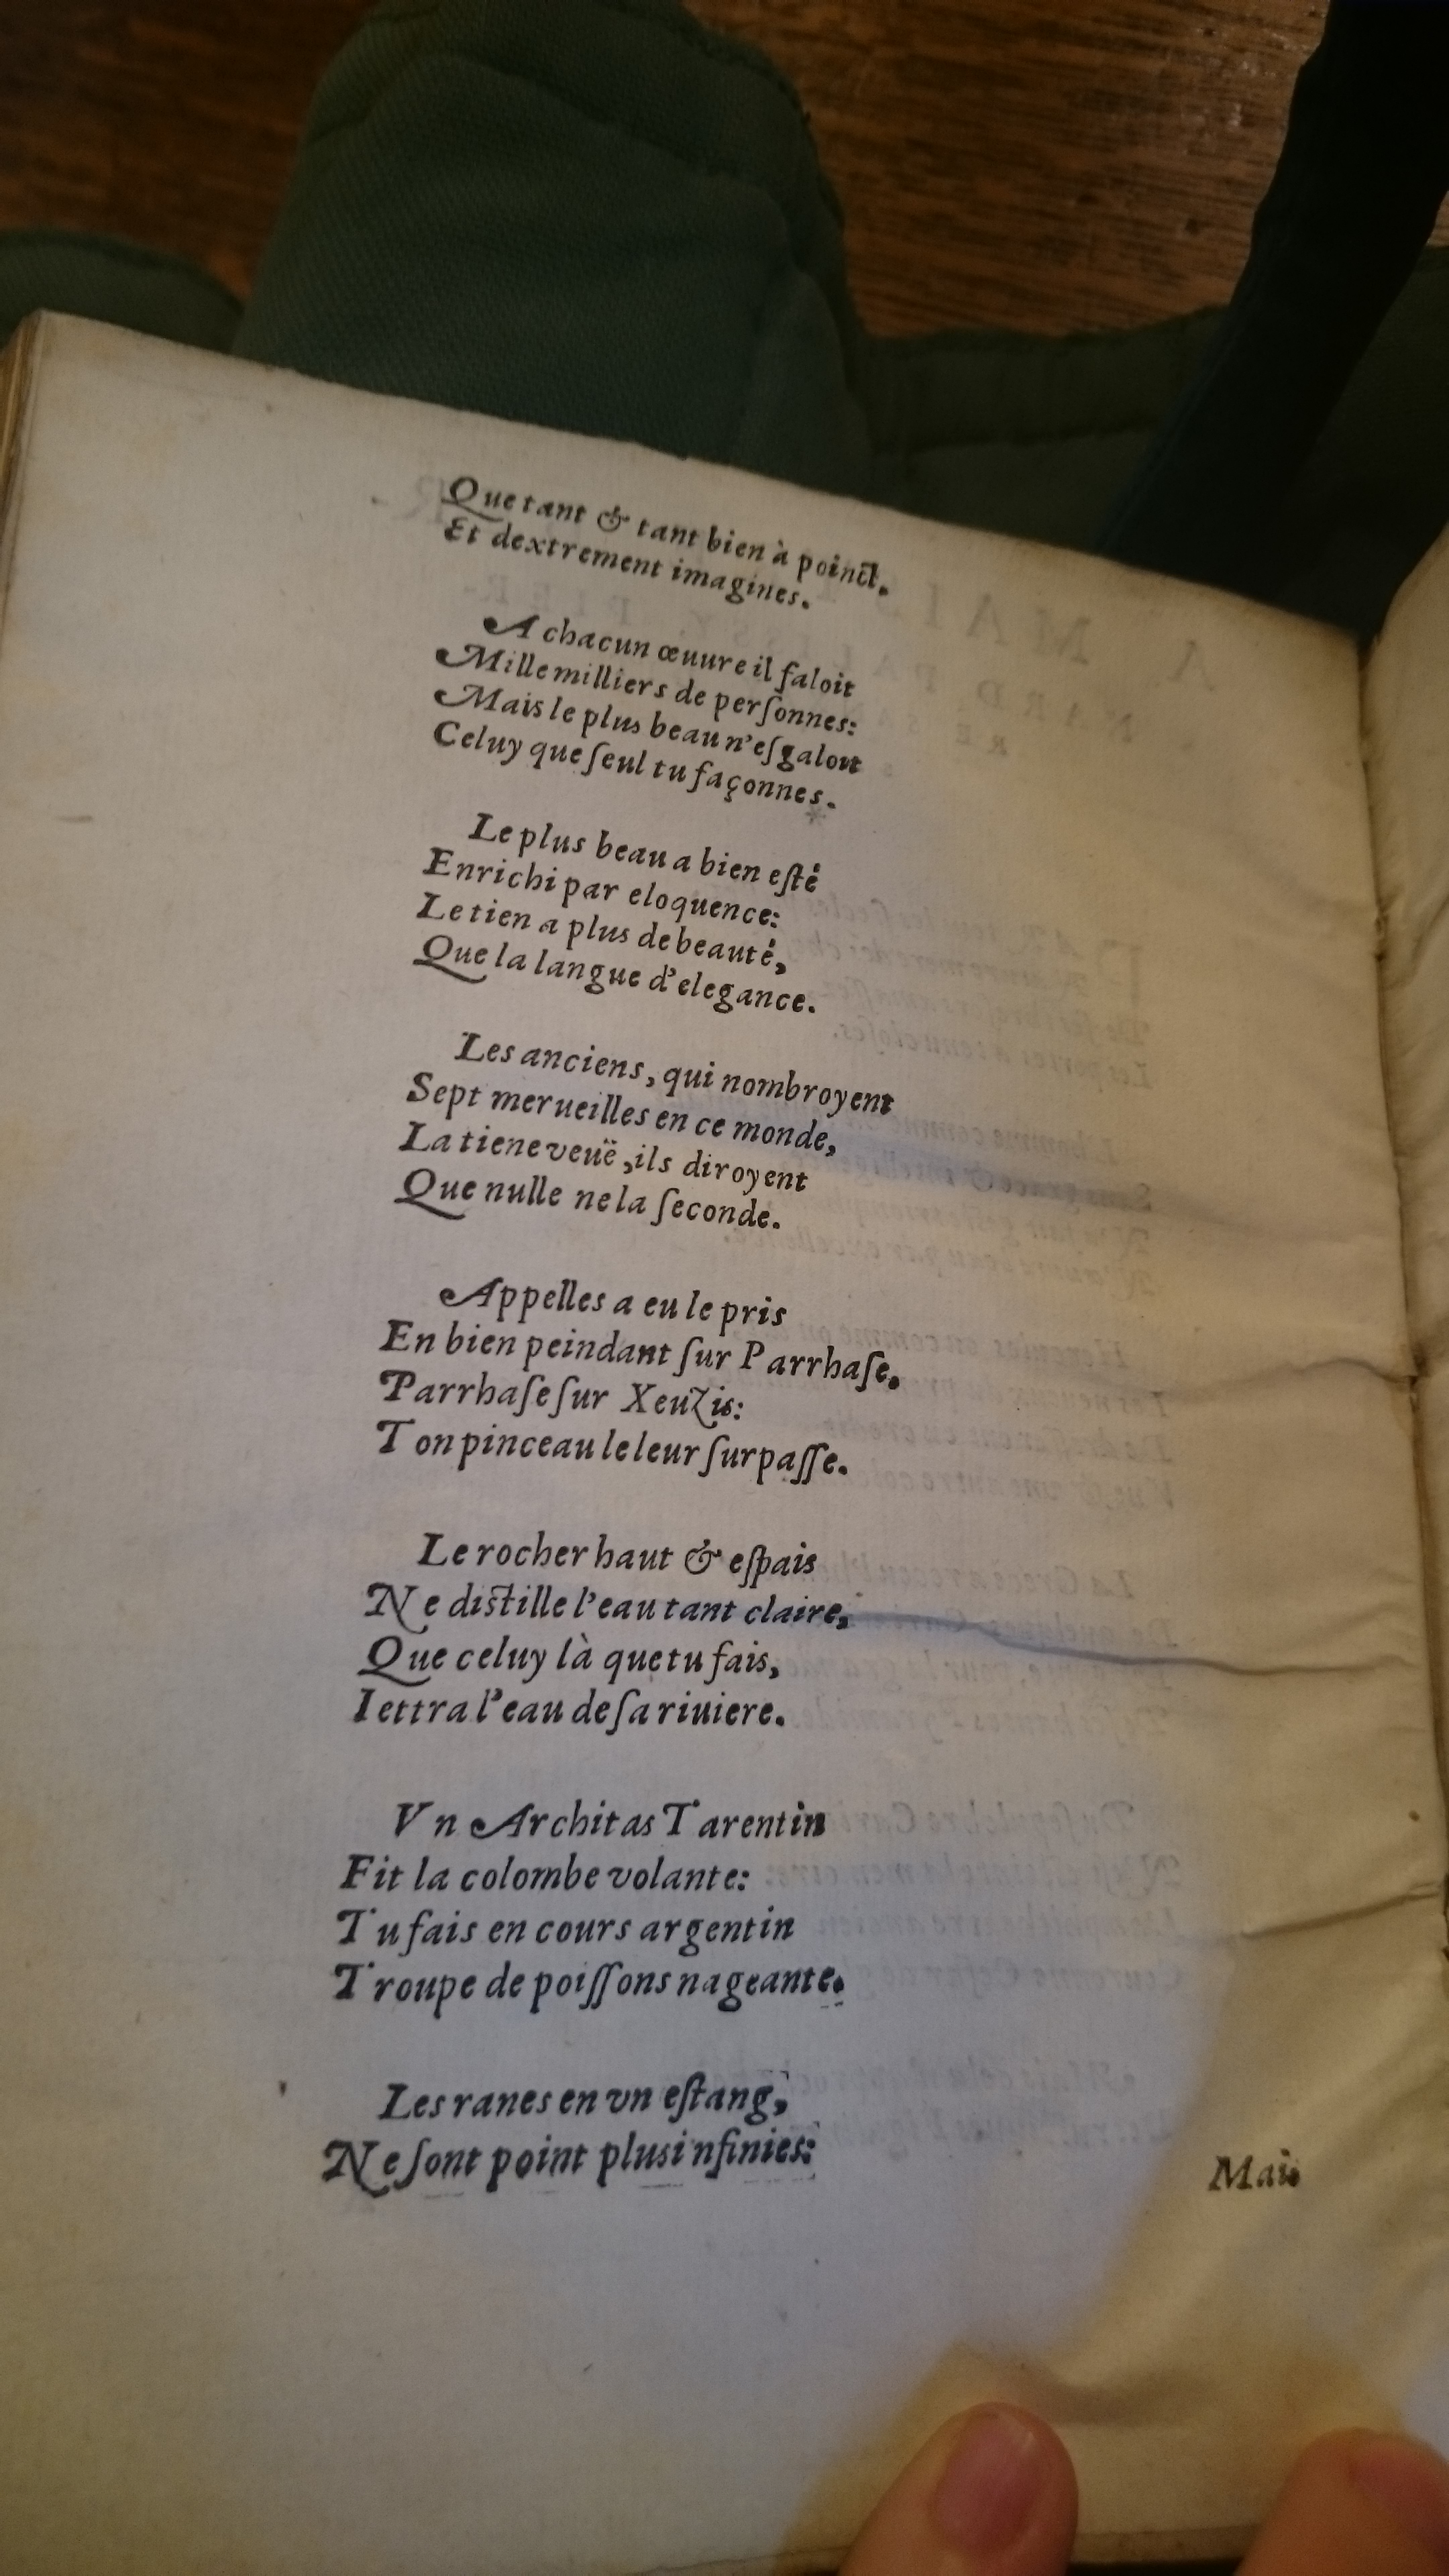 Que tant & tant bien à poinct.
Et dextrement imagines.
A chacun œuure il faloit
Mille milliers de perſonnes:
Mais le plus beau n'eſgaloit
Celuy que ſeul tu façonnes.
Le plus beau a bien eſté
Enrichi par eloquence:
Le tien a plus de beauté,
Que la langue d'elegance.
Les anciens, qui nombroyent
Sept merueilles en ce monde,
La tiene veuë, ils diroyent
Que nulle ne la ſeconde.
Appelles a eu le pris
En bien peindant ſur Parrhaſe.
Parrhaſe ſur Xeuzis:
Ton pinceau le leur ſurpaſſe.
Le rocher haut & eſpais
Ne diſtille l'eau tant claire,
Que celuy là que tu fais,
Iettra l'eau de ſa riuiere.
Vn Architas Tarentin
Fit la colombe volante:
Tu fais en cours argentin
Troupe de poiſſons nageante.
Les ranes en vn eſtang,
Ne ſont point plus infinies:
Mais